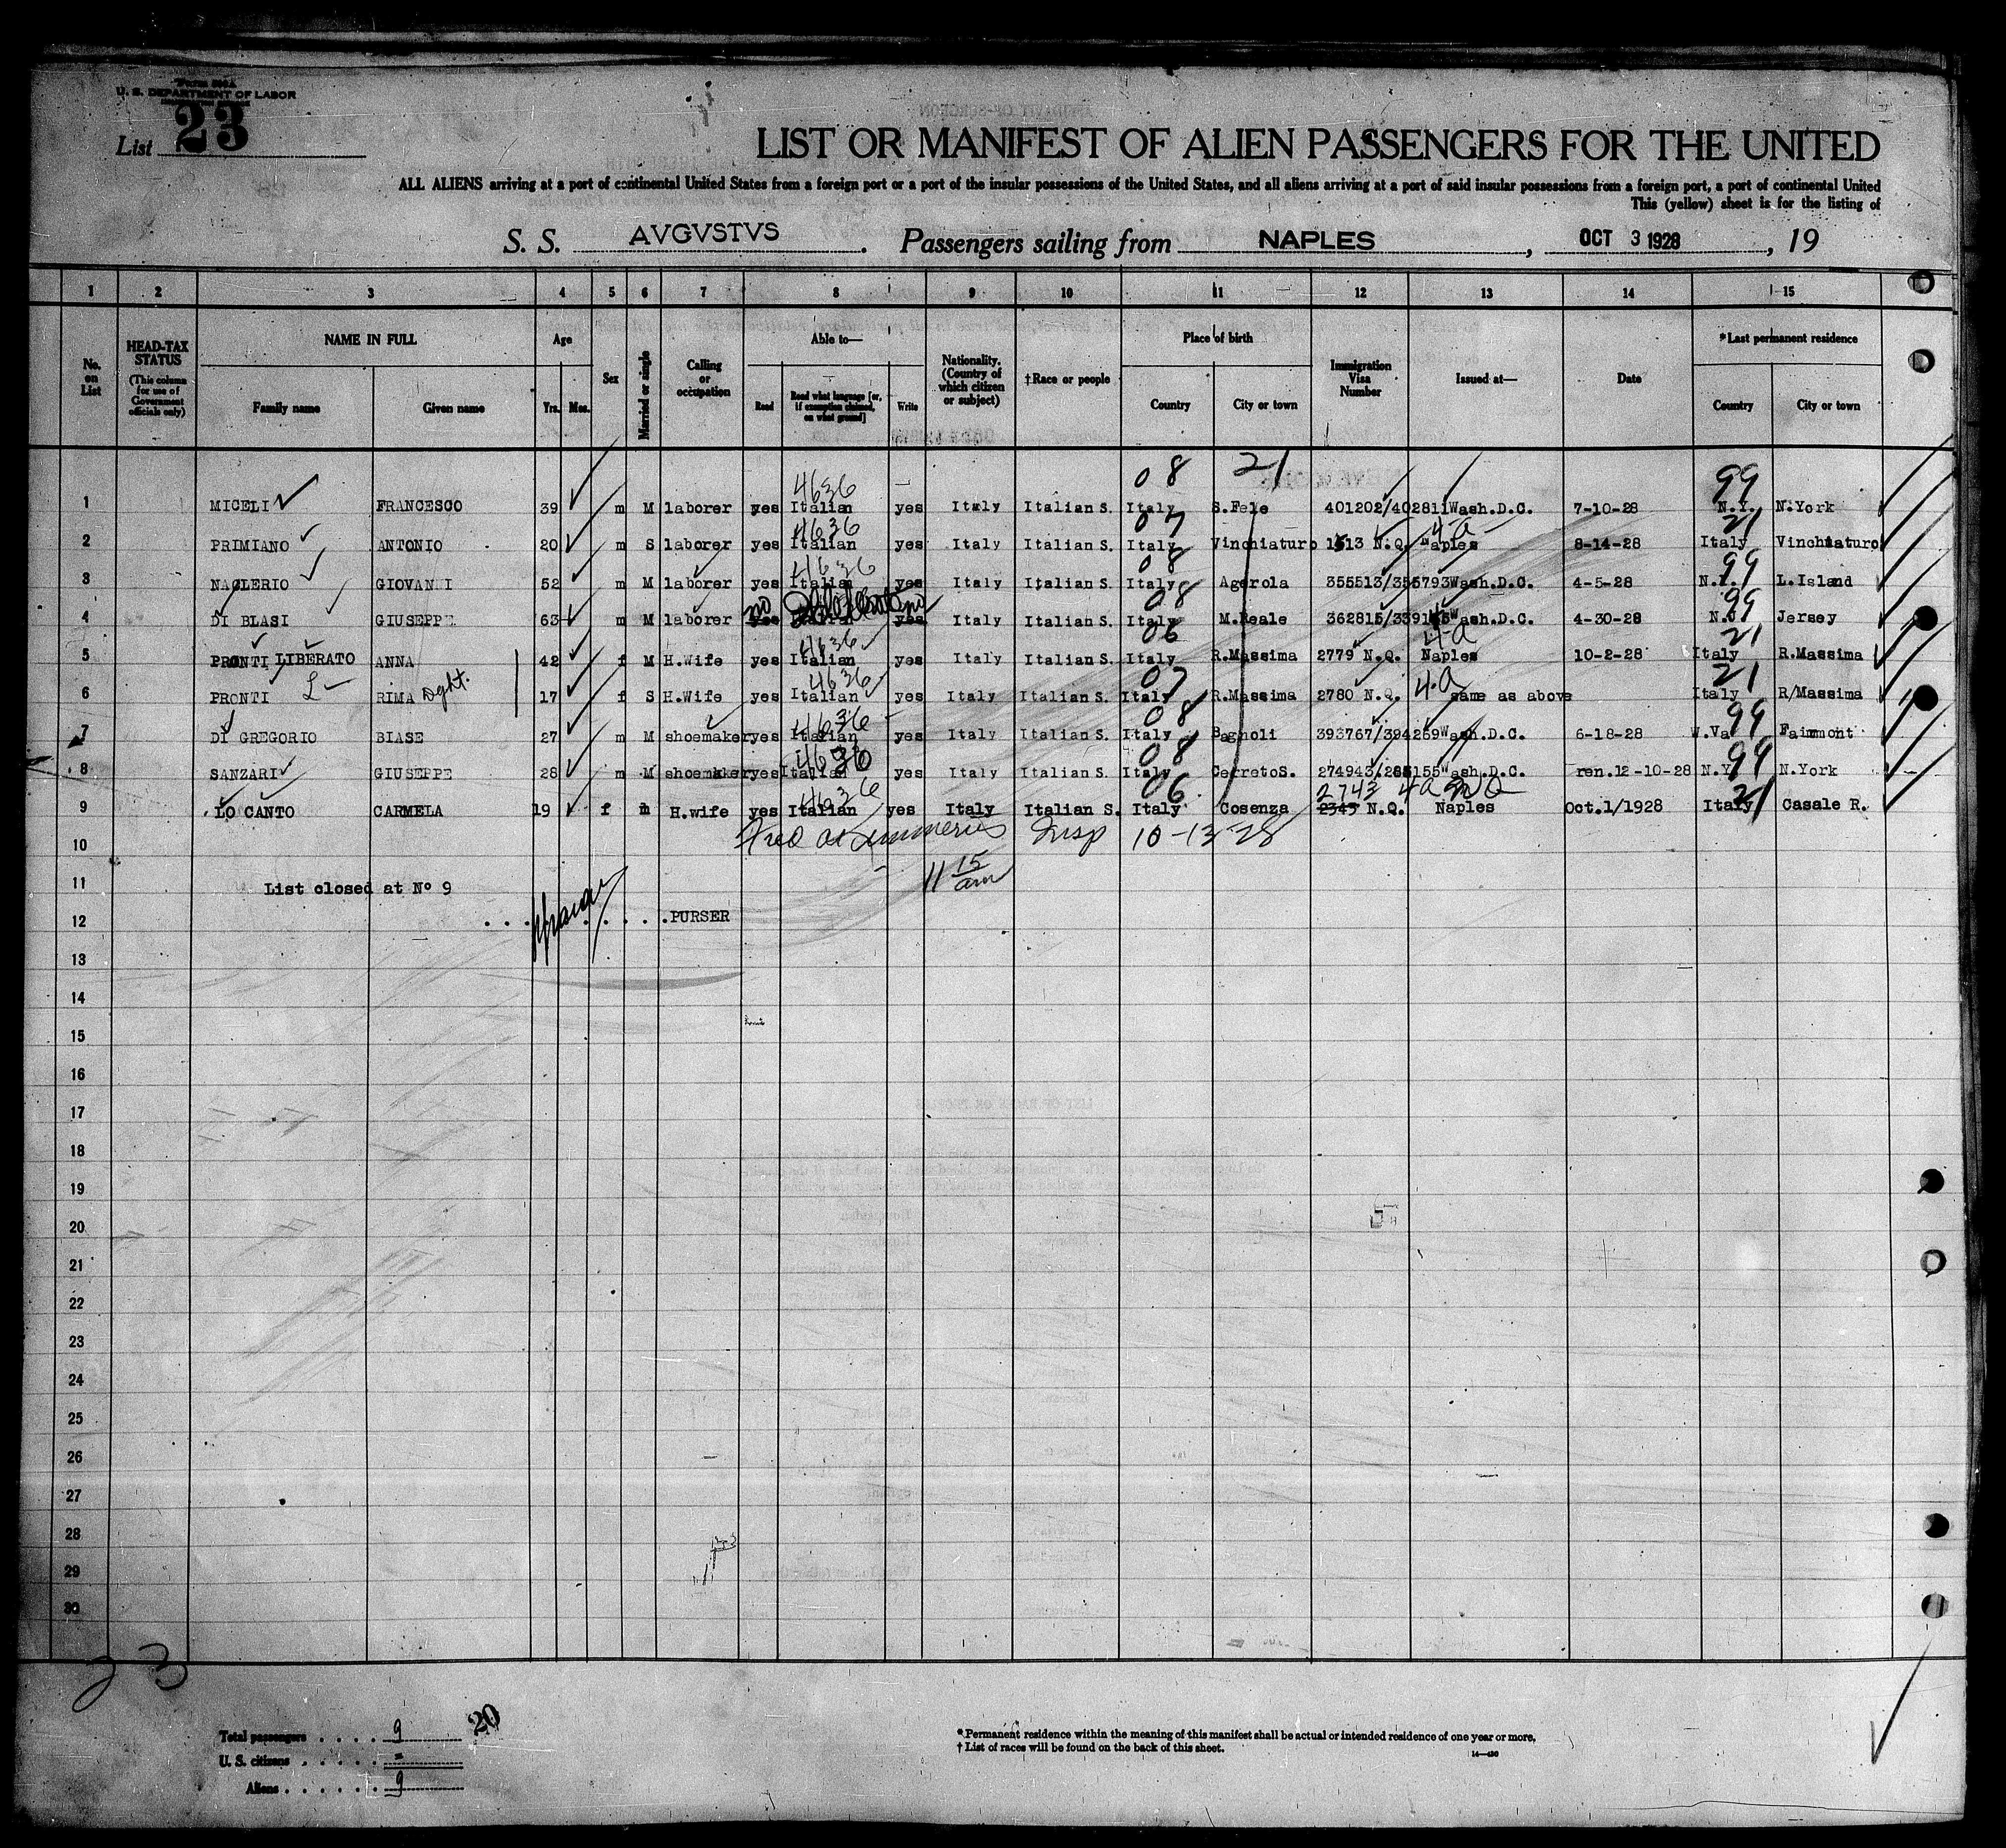 Form 500A
U. S. DEPARTMENT OF LABOR
List 23
LIST OR MANIFEST OF ALIEN PASSENGERS FOR THE UNITED
ALL ALIENS arriving at a port of continental United States from a foreign port or a port of the insular possessions of the United States, and all aliens arriving at a port of said insular possessions from a foreign port, a port of continental United
This (yellow) sheet is for the listing of
S. S. AVGVSTVS. Passengers sailing from NAPLES, OCT 3 1928, 19
1 2 3 4 5 6 7 8 9 10 11 12 13 14 15
No. on List
HEAD-TAX STATUS (This column for use of Government officials only)
NAME IN FULL
Family name
Given name
Age
Yrs. Mos.
Sex
Married or single
Calling or occupation
Able to—
Read
Read what language [or, if exemption claimed, on what ground]
Write
Nationality. (Country of which citizen or subject)
†Race or people
Place of birth
Country
City or town
Immigration Visa Number
Issued at—
Date
*Last permanent residence
Country
City or town
4636 08 21 99
1 MICELI FRANCESCO 39 m M laborer yes Italian yes Italy Italian S. Italy S.Fele 401202/402811 Wash.D.C. 7-10-28 N.Y. N.York
4636 07 4-a 21
2 PRIMIANO ANTONIO 20 m S laborer yes Italian yes Italy Italian S. Italy Vinchiaturo 1513 N.Q. Naples 8-14-28 Italy Vinchiaturo
4636 08 99
3 NACLERIO GIOVANNI 52 m M laborer yes Italian yes Italy Italian S. Italy Agerola 355513/355793 Wash.D.C. 4-5-28 N.Y. L.Island
no no 08 99
4 DI BLASI GIUSEPPE 63 m M laborer yes Italian yes Italy Italian S. Italy M.Reale Wash.D.C. 4-30-28 Jersey
4636 06 4-a 21
5 PRONTI LIBERATO ANNA 42 f M H.Wife yes Italian yes Italy Italian S. Italy R.Massima 2779 N.Q. Naples 10-2-28 Italy R.Massima
4636 07 4-a 21
6 PRONTI L RIMA dght. 17 f S H.Wife yes Italian yes Italy Italian S. Italy R.Massima 2780 N.Q. same as above Italy R/Massima
4636 08 99
7 DI GREGORIO BIASE 27 m M shoemaker yes Italian yes Italy Italian S. Italy Bagnoli 393767/394259 Wash.D.C. 6-18-28 W.Va Fairmont
4636 08 99
8 SANZARI GIUSEPPE 28 m M shoemaker yes Italian yes Italy Italian S. Italy CerretoS. Wash.D.C. ren.12-10-28 N.Y. N.York
4636 06 2743 4a NQ 21
9 LO CANTO CARMELA 19 f m H.wife yes Italian yes Italy Italian S. Italy Cosenza 2345 N.Q. Naples Oct.1/1928 Italy Casale R.
10 Insp 10-13-28
11 List closed at Nº 9 11 15 am
12 .PURSER
13
14
15
16
17
18
19
20
21
22
23
24
25
26
27
28
29
30
23
Total passengers 9 20
U. S. citizens =
Aliens 9
*Permanent residence within the meaning of this manifest shall be actual or intended residence of one year or more.
†List of races will be found on the back of this sheet.
14—430